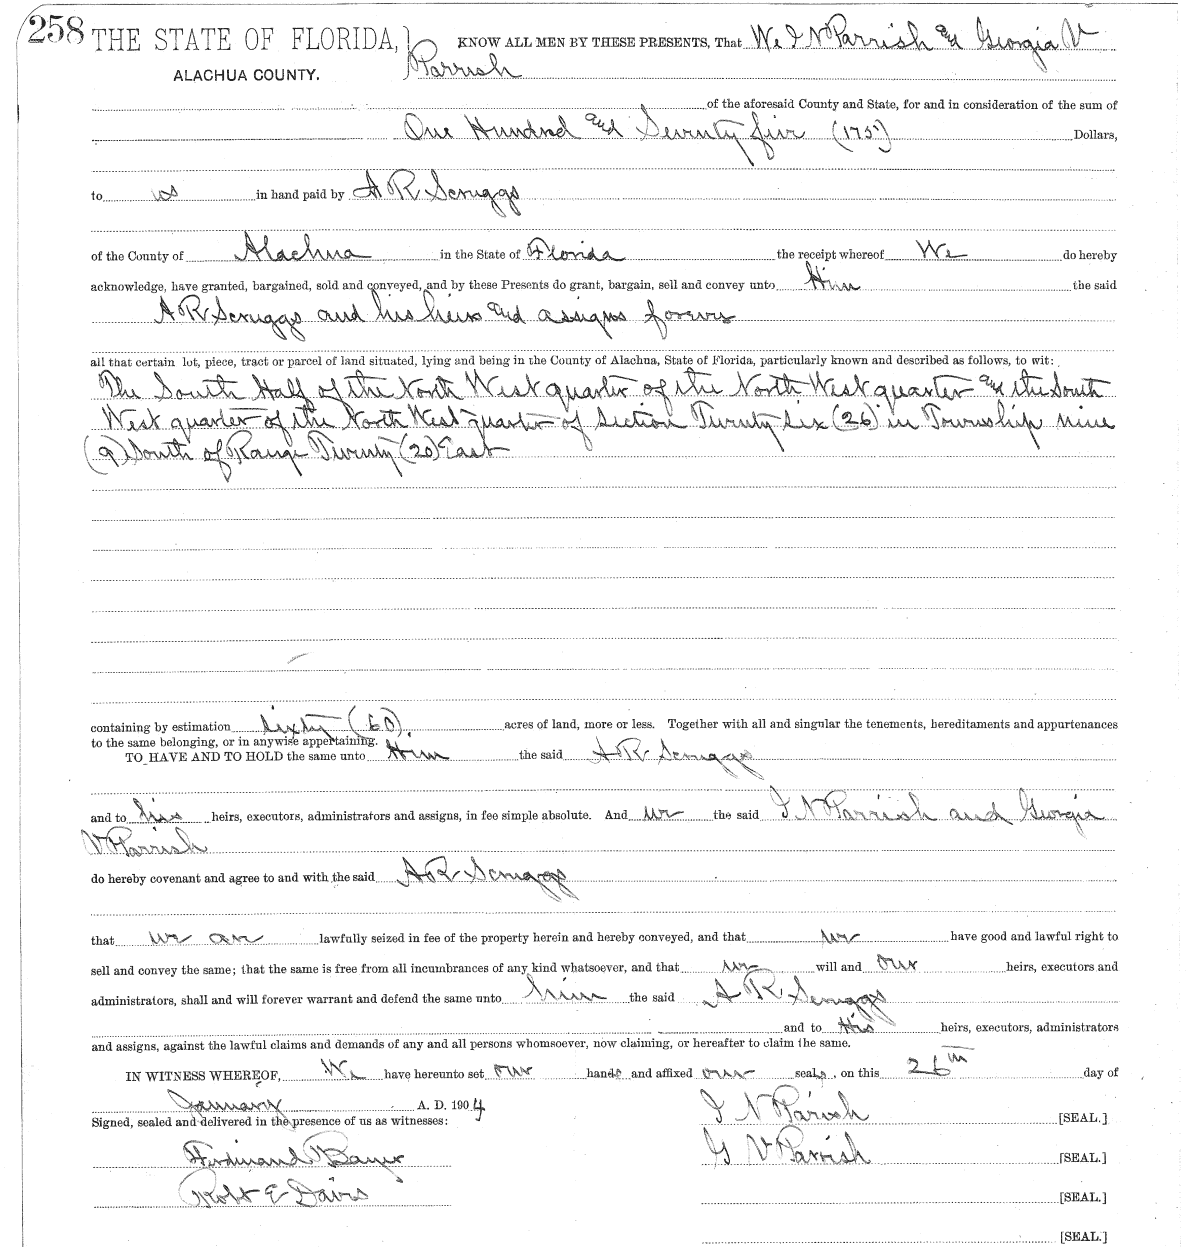 258 THE STATE OF FLORIDA, } KNOW ALL MEN BY THESE PRESENTS, That We I N Parrish and Georgia V
ALACHUA COUNTY. Parrish
of the aforesaid County and State, for and in consideration of the sum of
One Hundred and Seventy five (175) Dollars,
to us in hand paid by A R Scruggs
of the County of Alachua in the State of Florida the receipt whereof We do hereby
acknowledge, have granted, bargained, sold and conveyed, and by these Presents do grant, bargain, sell and convey unto Him the said
A R Scruggs and his heirs and assigns forever
all that certain lot, piece, tract or parcel of land situated, lying and being in the County of Alachua, State of Florida, particularly known and described as follows, to wit:
The South Half of the North West quarter of the North West quarter and the South
West quarter of the North West quarter of Section Twenty six (26) in Township nine
(9) South of Range Twenty (20) East
containing by estimation sixty (60) acres of land, more or less. Together with all and singular the tenements, hereditaments and appurtenances
to the same belonging, or in anywise appertaining.
TO HAVE AND TO HOLD the same unto Him the said A R Scruggs
and to his heirs, executors, administrators and assigns, in fee simple absolute. And we the said I N Parrish and Georgia
V Parrish
do hereby covenant and agree to and with the said A R Scruggs
that we are lawfully seized in fee of the property herein and hereby conveyed, and that we have good and lawful right to
sell and convey the same; that the same is free from all incumbrances of any kind whatsoever, and that we will and our heirs, executors and
administrators, shall and will forever warrant and defend the same unto him the said A R Scruggs
and to His heirs, executors, administrators
and assigns, against the lawful claims and demands of any and all persons whomsoever, now claiming, or hereafter to claim the same.
IN WITNESS WHEREOF, We have hereunto set our hands and affixed our seals, on this 26th day of
January A. D. 1904
Signed, sealed and delivered in the presence of us as witnesses: I N Parrish [SEAL.]
Ferdinand Bayer G V Parrish [SEAL.]
Robt E Davis [SEAL.]
[SEAL.]